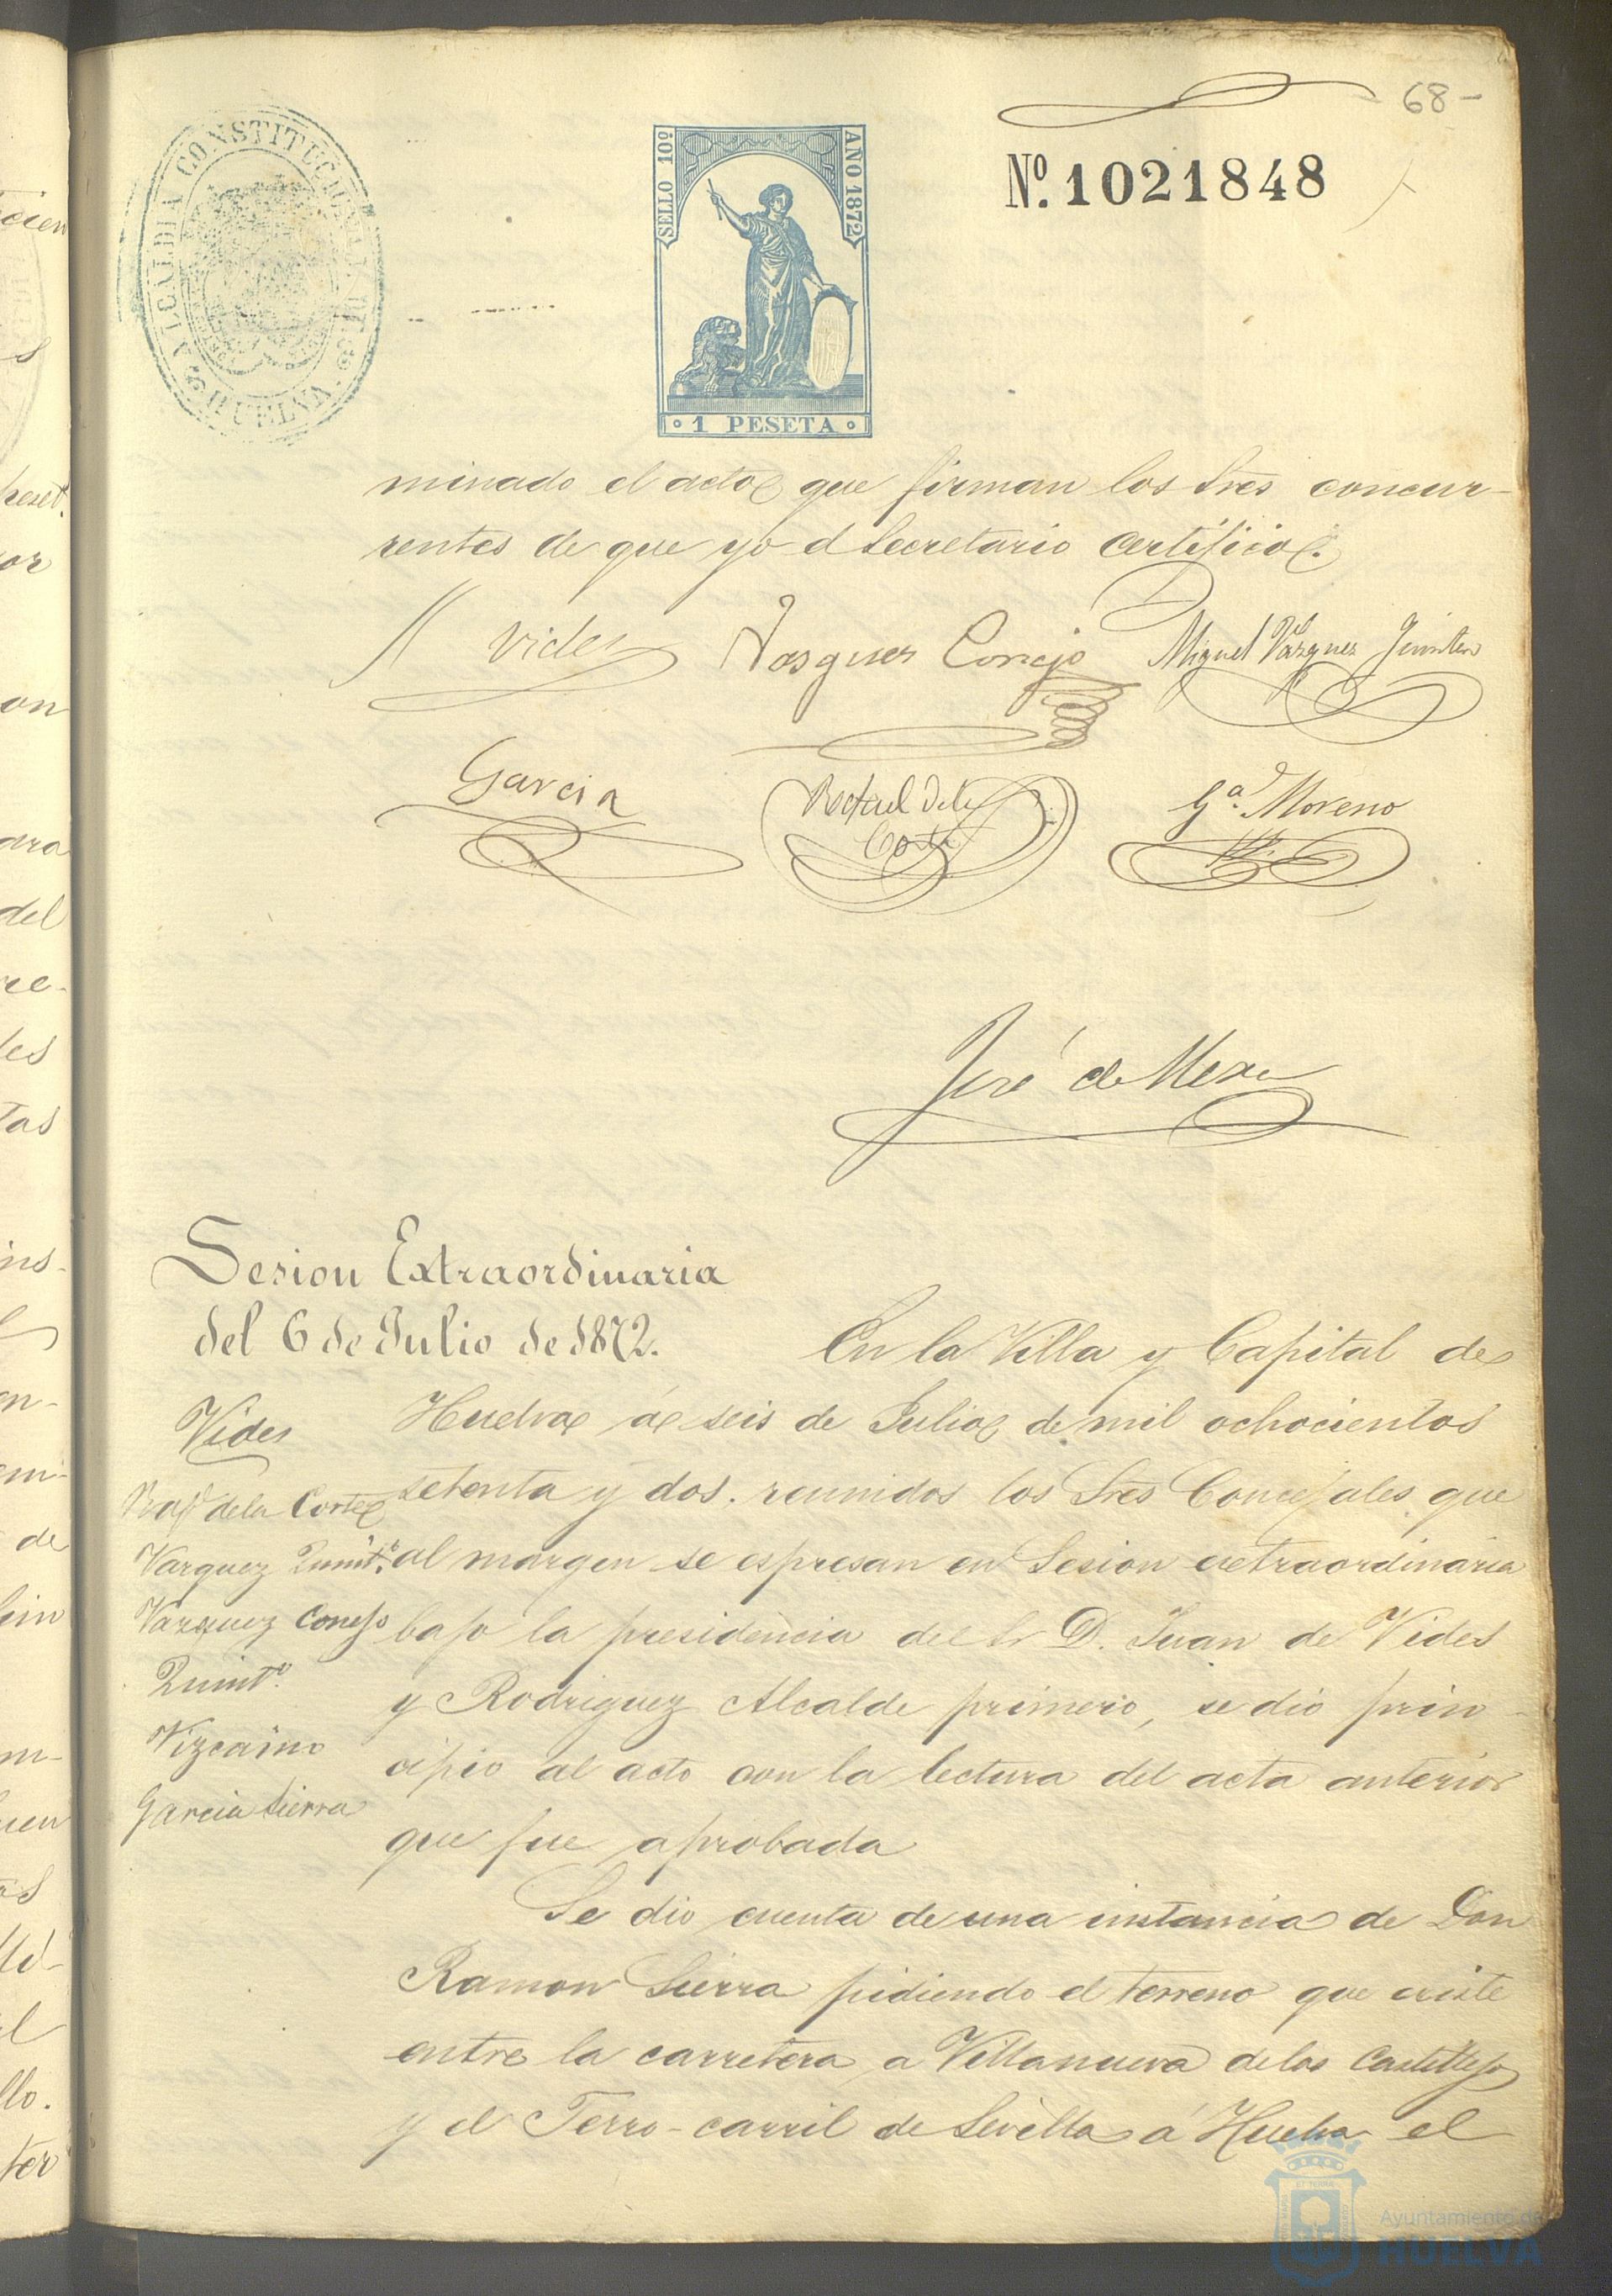 68-
ALCALDIA CONSTITUCIONAL DE HUELVA
SELLO 10º
AÑO 1872
Nº. 1021848
1 PESETA
minado el acto que firman los Sres concur-
rentes de que yo el Secretario certifico.
Vides Vasquez Conejo Miguel Vázquez
Garcia Rafael de la Corte Gª. Moreno
José de Mesa
Sesion Extraordinaria
del 6 de Julio de 1872.
En la Villa y Capital de
Huelva á seis de Julio de mil ochocientos
setenta y dos. reunidos los Sres Concejales que
al margen se espresan en Sesion extraordinaria
bajo la presidencia del Sr D. Juan de Vides
y Rodriguez Alcalde primero, se dió prin-
cipio al acto con la lectura del acta anterior
que fue aprobada
Vides
Raf.l de la Corte
Vazquez Quint.º
Vazquez Conejo
Quint.º
Vizcaino
Garcia Sierra
Se dió cuenta de una instancia de Don
Ramon Sierra pidiendo el terreno que existe
entre la carretera a Villanueva de los Castillejos
y el Ferro-carril de Sevilla á Huelva el
Ayuntamiento de
HUELVA